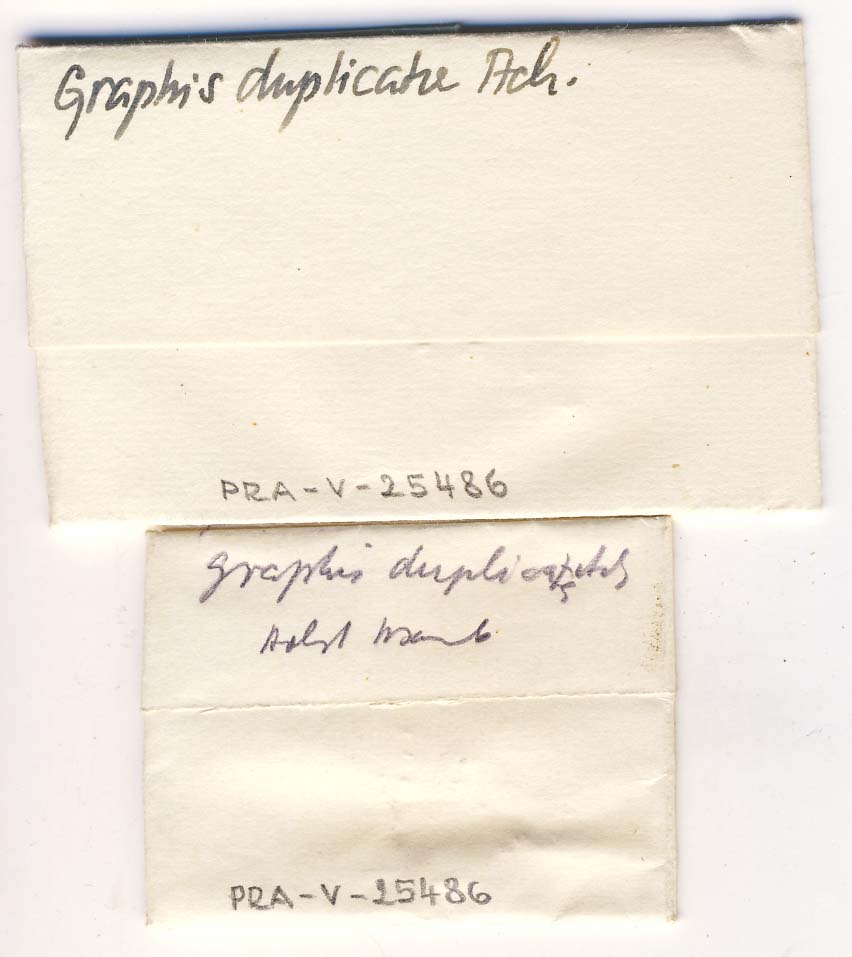 Graphis duplicata Ach.
PRA-V-25486
Graphis duplicata Ach
PRA-V-25486